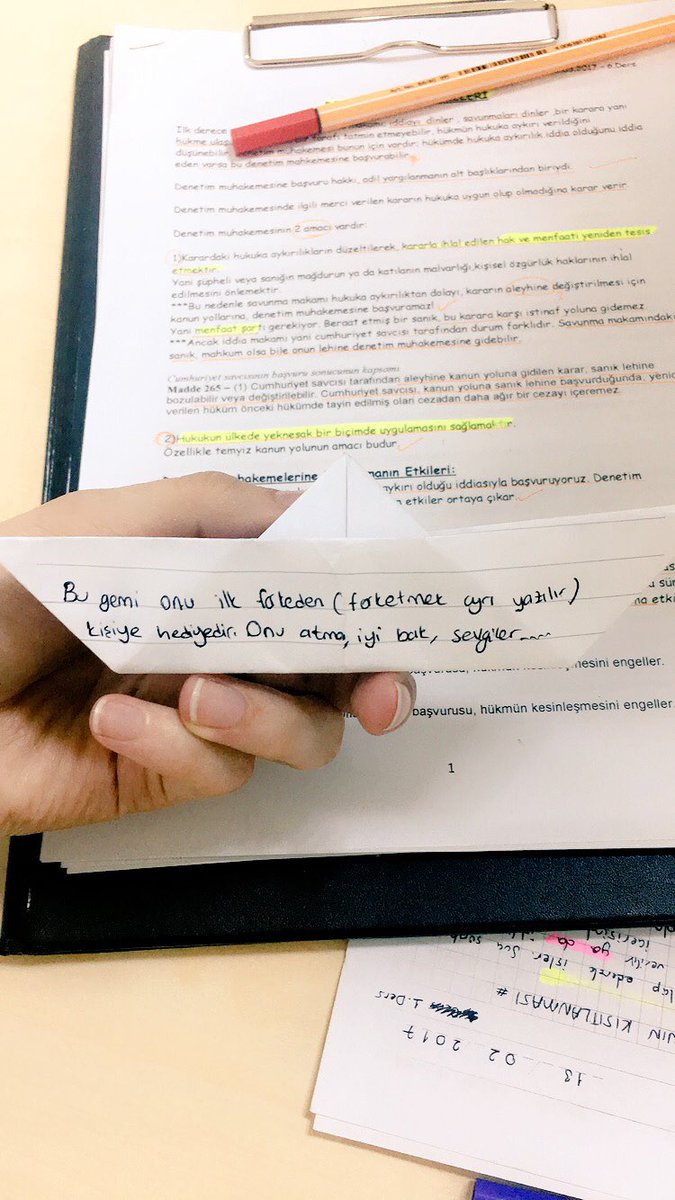 2017 - 6 Ders
İlk derece iddiayı dinler , savunmaları dinler ,bir karara yani
hükme tatmin etmeyebilir, hükmün hukuka aykırı verildiğini
düşünebilir, denetim muhakemesi bunun için vardır; hükümde hukuka aykırılık iddia olduğunu iddia
eden varsa bu denetim mahkemesine başvurabilir.
Denetim muhakemesine başvuru hakkı, adil yargılanmanın alt başlıklarından biriydi.
Denetim muhakemesinde ilgili merci verilen kararın hukuka uygun olup olmadığına karar verir
Denetim muhakemesinin 2 amacı vardır:
1)Karardaki hukuka aykırılıkların düzeltilerek, kararla ihlal edilen hak ve menfaati yeniden tesis
etmektir.
Yani şüpheli veya sanığın mağdurun ya da katılanın malvarlığı,kişisel özgürlük haklarının ihlal
edilmesini önlemektir.
***Bu nedenle savunma makamı hukuka aykırılıktan dolayı, kararın aleyhine değiştirilmesi için
kanun yollarına, denetim muhakemesine başvuramaz!
Yani menfaat şartı gerekiyor. Beraat etmiş bir sanık, bu karara karşı istinaf yoluna gidemez.
***Ancak iddia makamı yani cumhuriyet savcısı tarafından durum farklıdır. Savunma makamındaki
sanık, mahkum olsa bile onun lehine denetim muhakemesine gidebilir.
Cumhuriyet savcısının başvuru sonucunun kapsamı
Madde 265 – (1) Cumhuriyet savcısı tarafından aleyhine kanun yoluna gidilen karar, sanık lehine
bozulabilir veya değiştirilebilir. Cumhuriyet savcısı, kanun yoluna sanık lehine başvurduğunda, yenid
verilen hüküm önceki hükümde tayin edilmiş olan cezadan daha ağır bir cezayı içeremez.
2)Hukukun ülkede yeknesak bir biçimde uygulamasını sağlamaktır.
Özellikle temyiz kanun yolunun amacı budur.
hakemelerine manın Etkileri:
aykırı olduğu iddiasıyla başvuruyoruz. Denetim
etkiler ortaya çıkar.
Bu gemi onu ilk farkeden (farketmek ayrı yazılır)
kişiye hediyedir. Onu atma, iyi bak, sevgiler....
mesini engeller.
başvurusu, hükmün kesinleşmesini engeller.
1
ya da
NIN KISITLANMASI #
1. Ders
13 02 2017